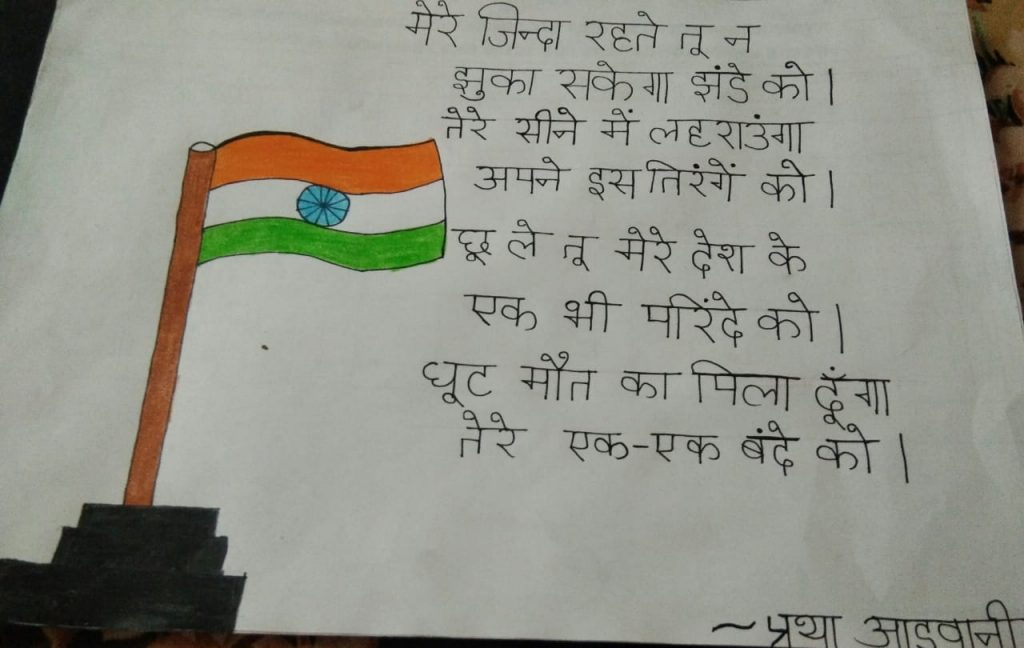 मेरे जिन्दा रहते तू न
झुका सकेगा झंडे को।
तेरे सीने में लहराउंगा
अपने इस तिरंगें को।
छू ले तू मेरे देश के
एक भी परिंदे को।
घूट मौत का पिला दूँगा
तेरे एक-एक बंदे को।
~प्रथा आडवानी